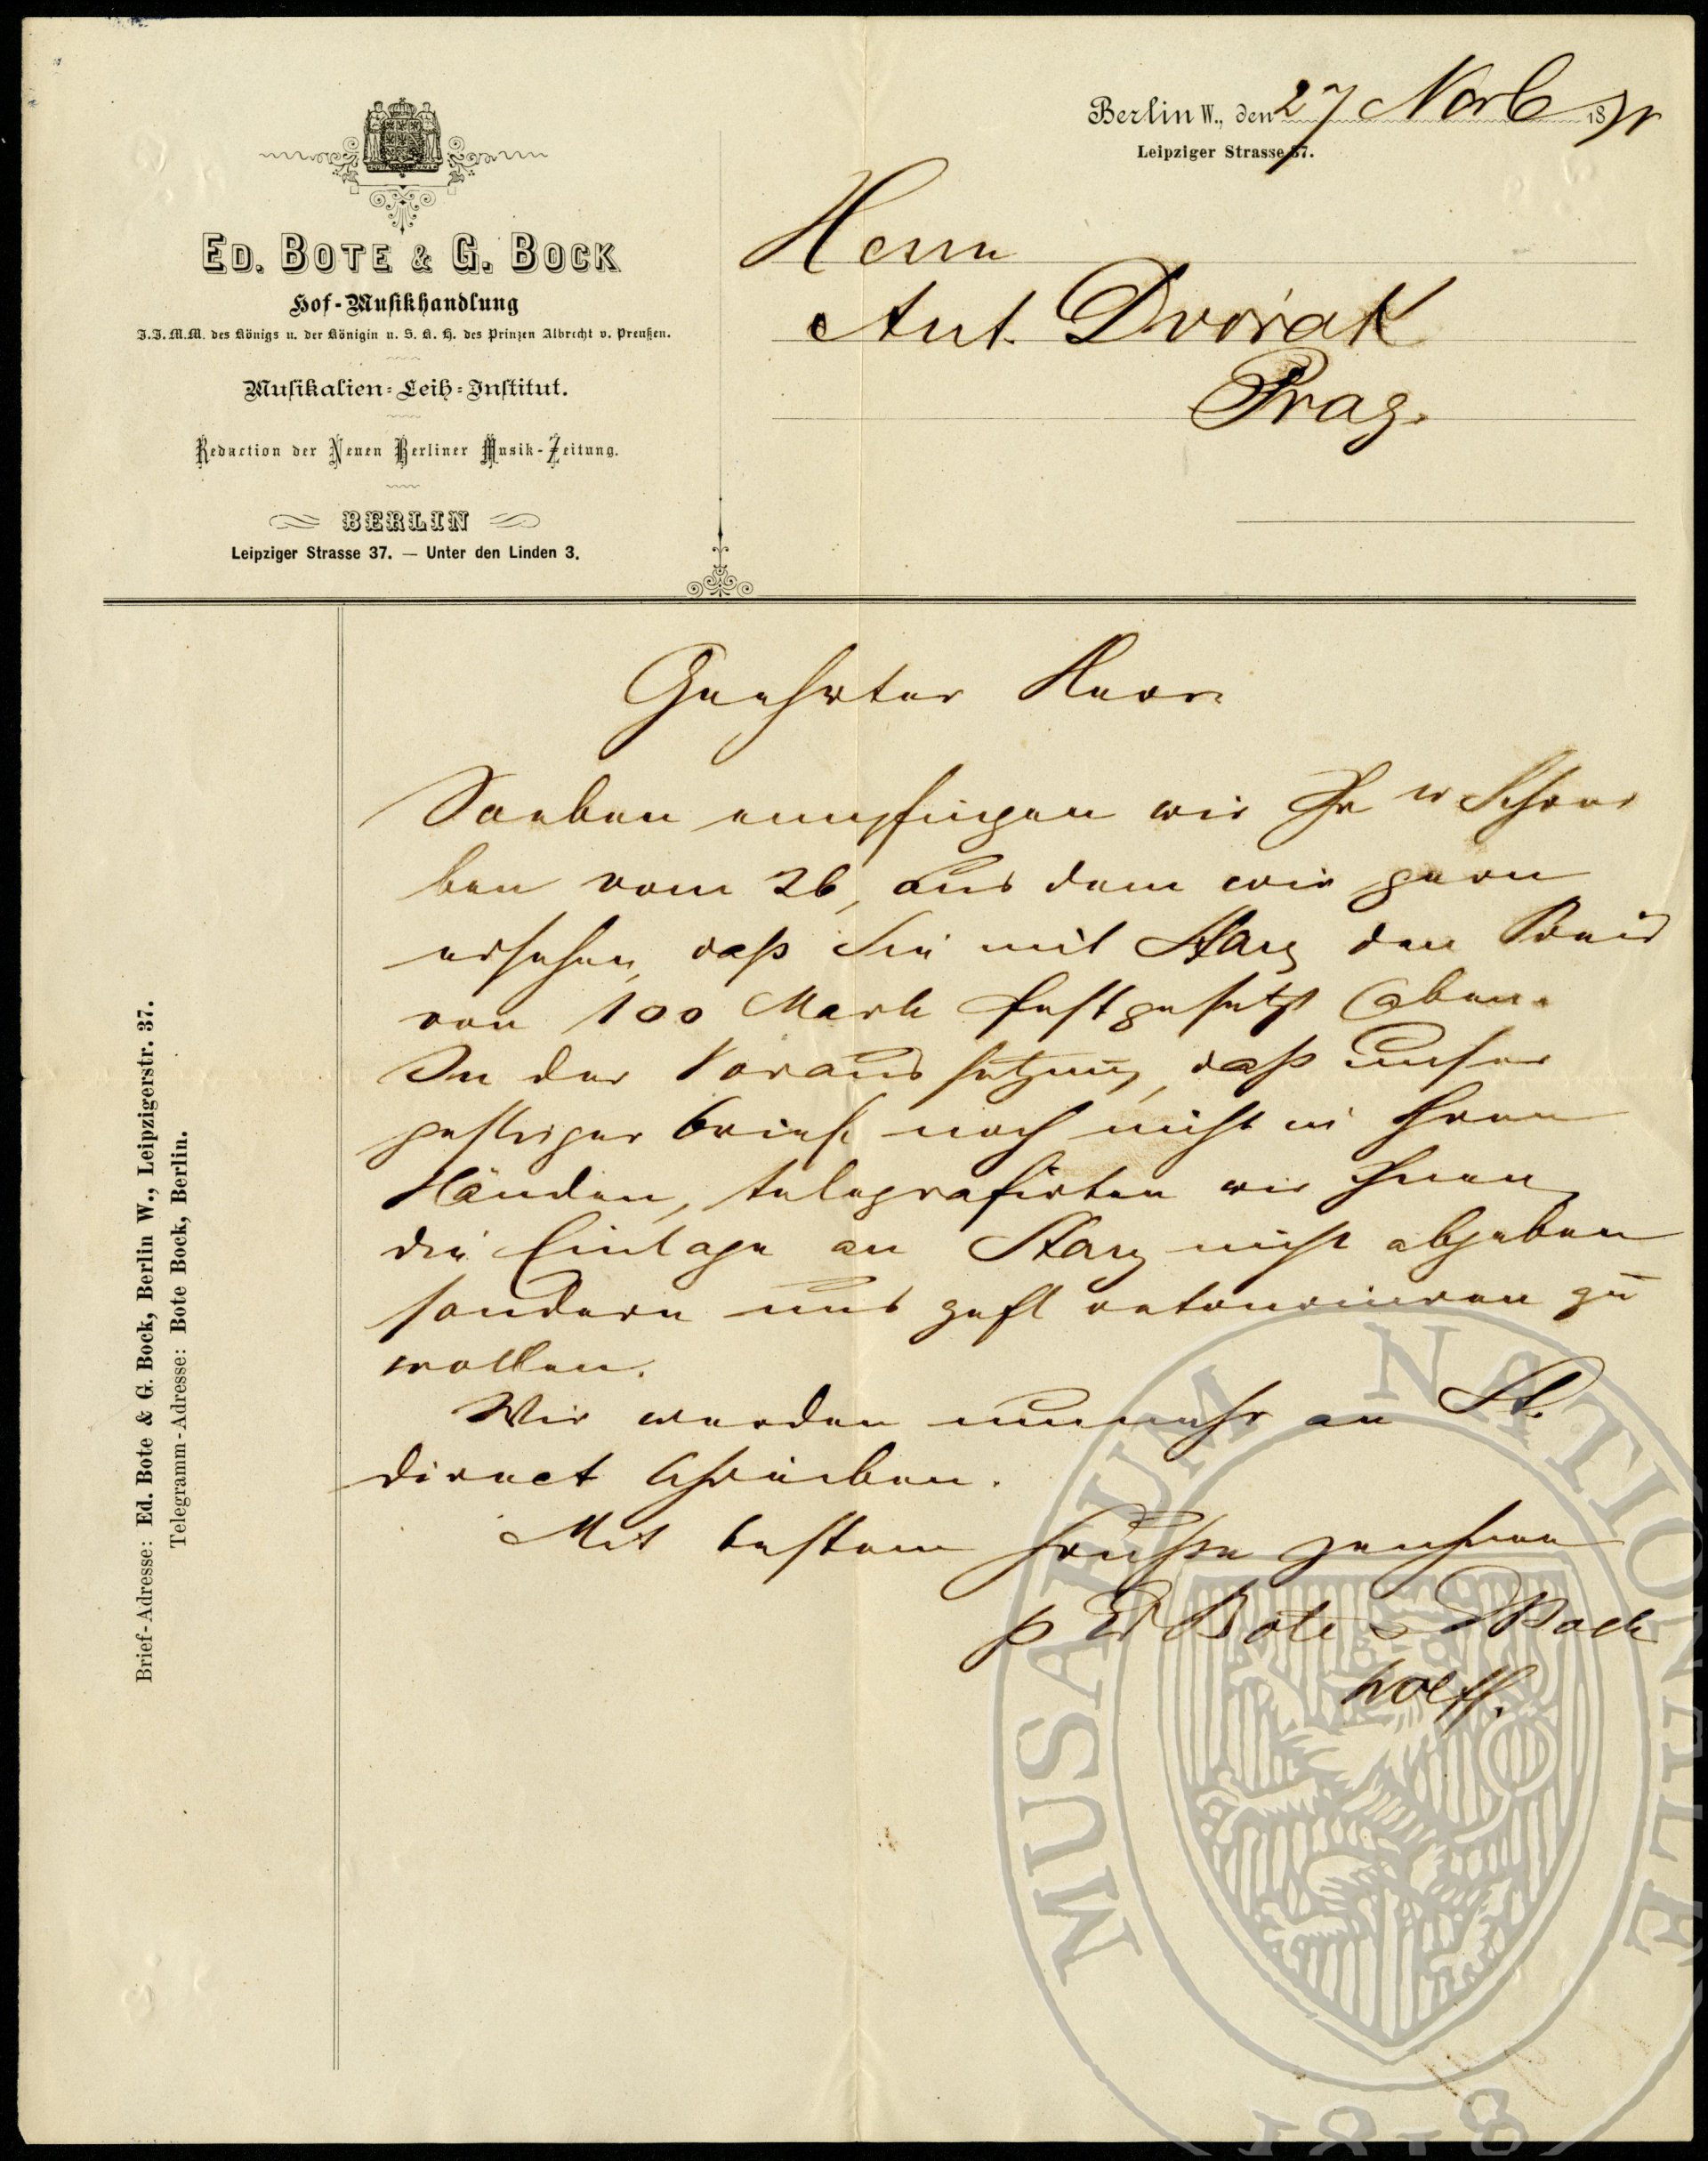 Berlin W., den 27 Novb 18
Leipziger Strasse 37.
ED. BOTE & G. BOCK
Hof-Musikhandlung
J.J.M.M. des Königs u. der Königin u. S. K. H. des Prinzen Albrecht v. Preußen.
Musikalien-Leih-Institut.
Redaction der Neuen Berliner Musik-Zeitung.
BERLIN
Leipziger Strasse 37. — Unter den Linden 3.
Herrn
Ant. Dvořak
Prag.
Brief-Adresse: Ed. Bote & G. Bock, Berlin W., Leipzigerstr. 37.
Telegramm-Adresse: Bote Bock, Berlin.
Geehrter Herr
Soeben empfingen wir Ihr w Schrei
ben vom 26, aus dem wir gern
ersehen, daß Sie mit Stary den Preis
von 100 Mark festgesetzt haben.
In der Voraussetzung, daß unser
gestriger Brief noch nicht in Ihren
Händen, telegrafirten wir Ihnen
die Einlage an Stary nicht abgeben
sondern uns gefl retourniren zu
wollen.
Wir werden nunmehr an St.
direct schreiben.
Mit bestem Gruße zeichnen
p Ed Bote & G Bock
Wolff.
MUSAEUM NATIONALE
1818